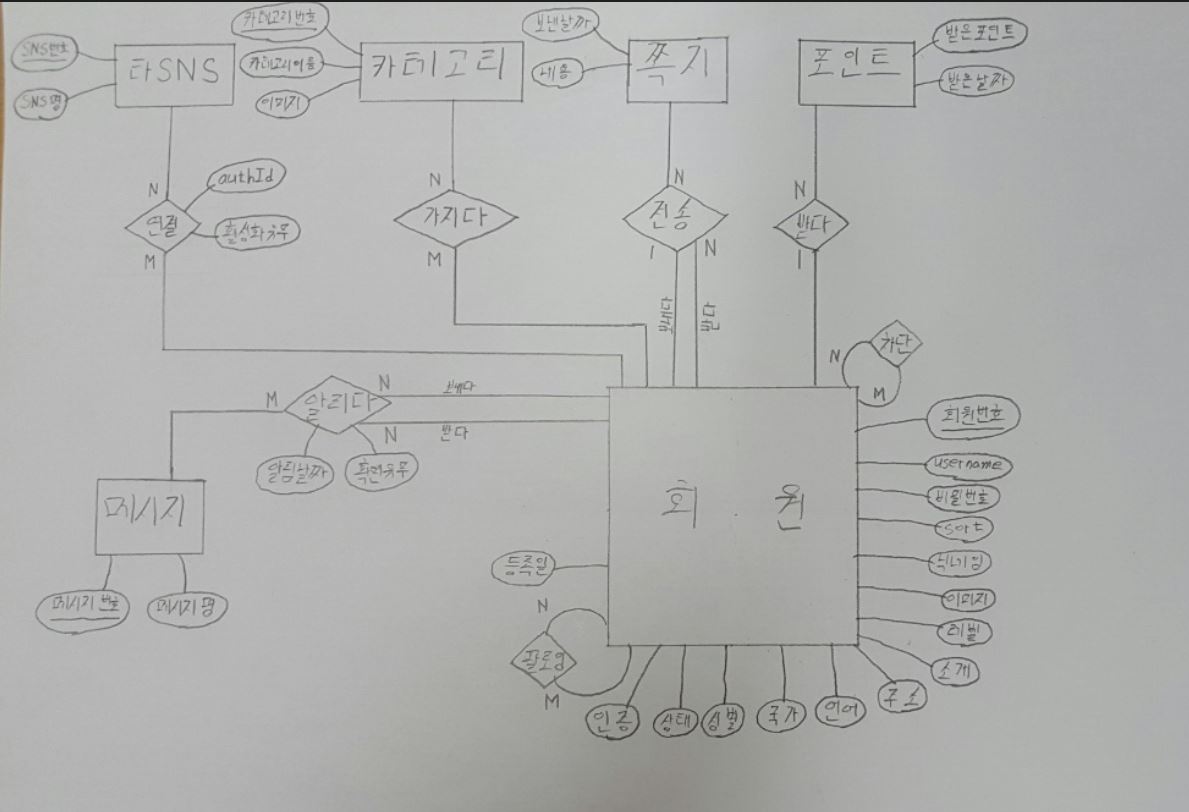 SNS번호
타SNS
SNS명
카테고리번호
카테고리이름
이미지
카테고리
보낸날짜
내용
쪽지
포인트
받은포인트
받은날짜
N
연결
authId
활성화유무
M
N
가지다
M
N
전송
1
N
보내다
받다
N
받다
1
차단
N
M
M
알리다
N
보내다
N
받다
알림날짜
확인유무
메시지
메시지번호
메시지명
회원
회원번호
username
비밀번호
salt
닉네임
이미지
레벨
소개
주소
언어
국가
성별
상태
인증
등록일
N
팔로잉
M